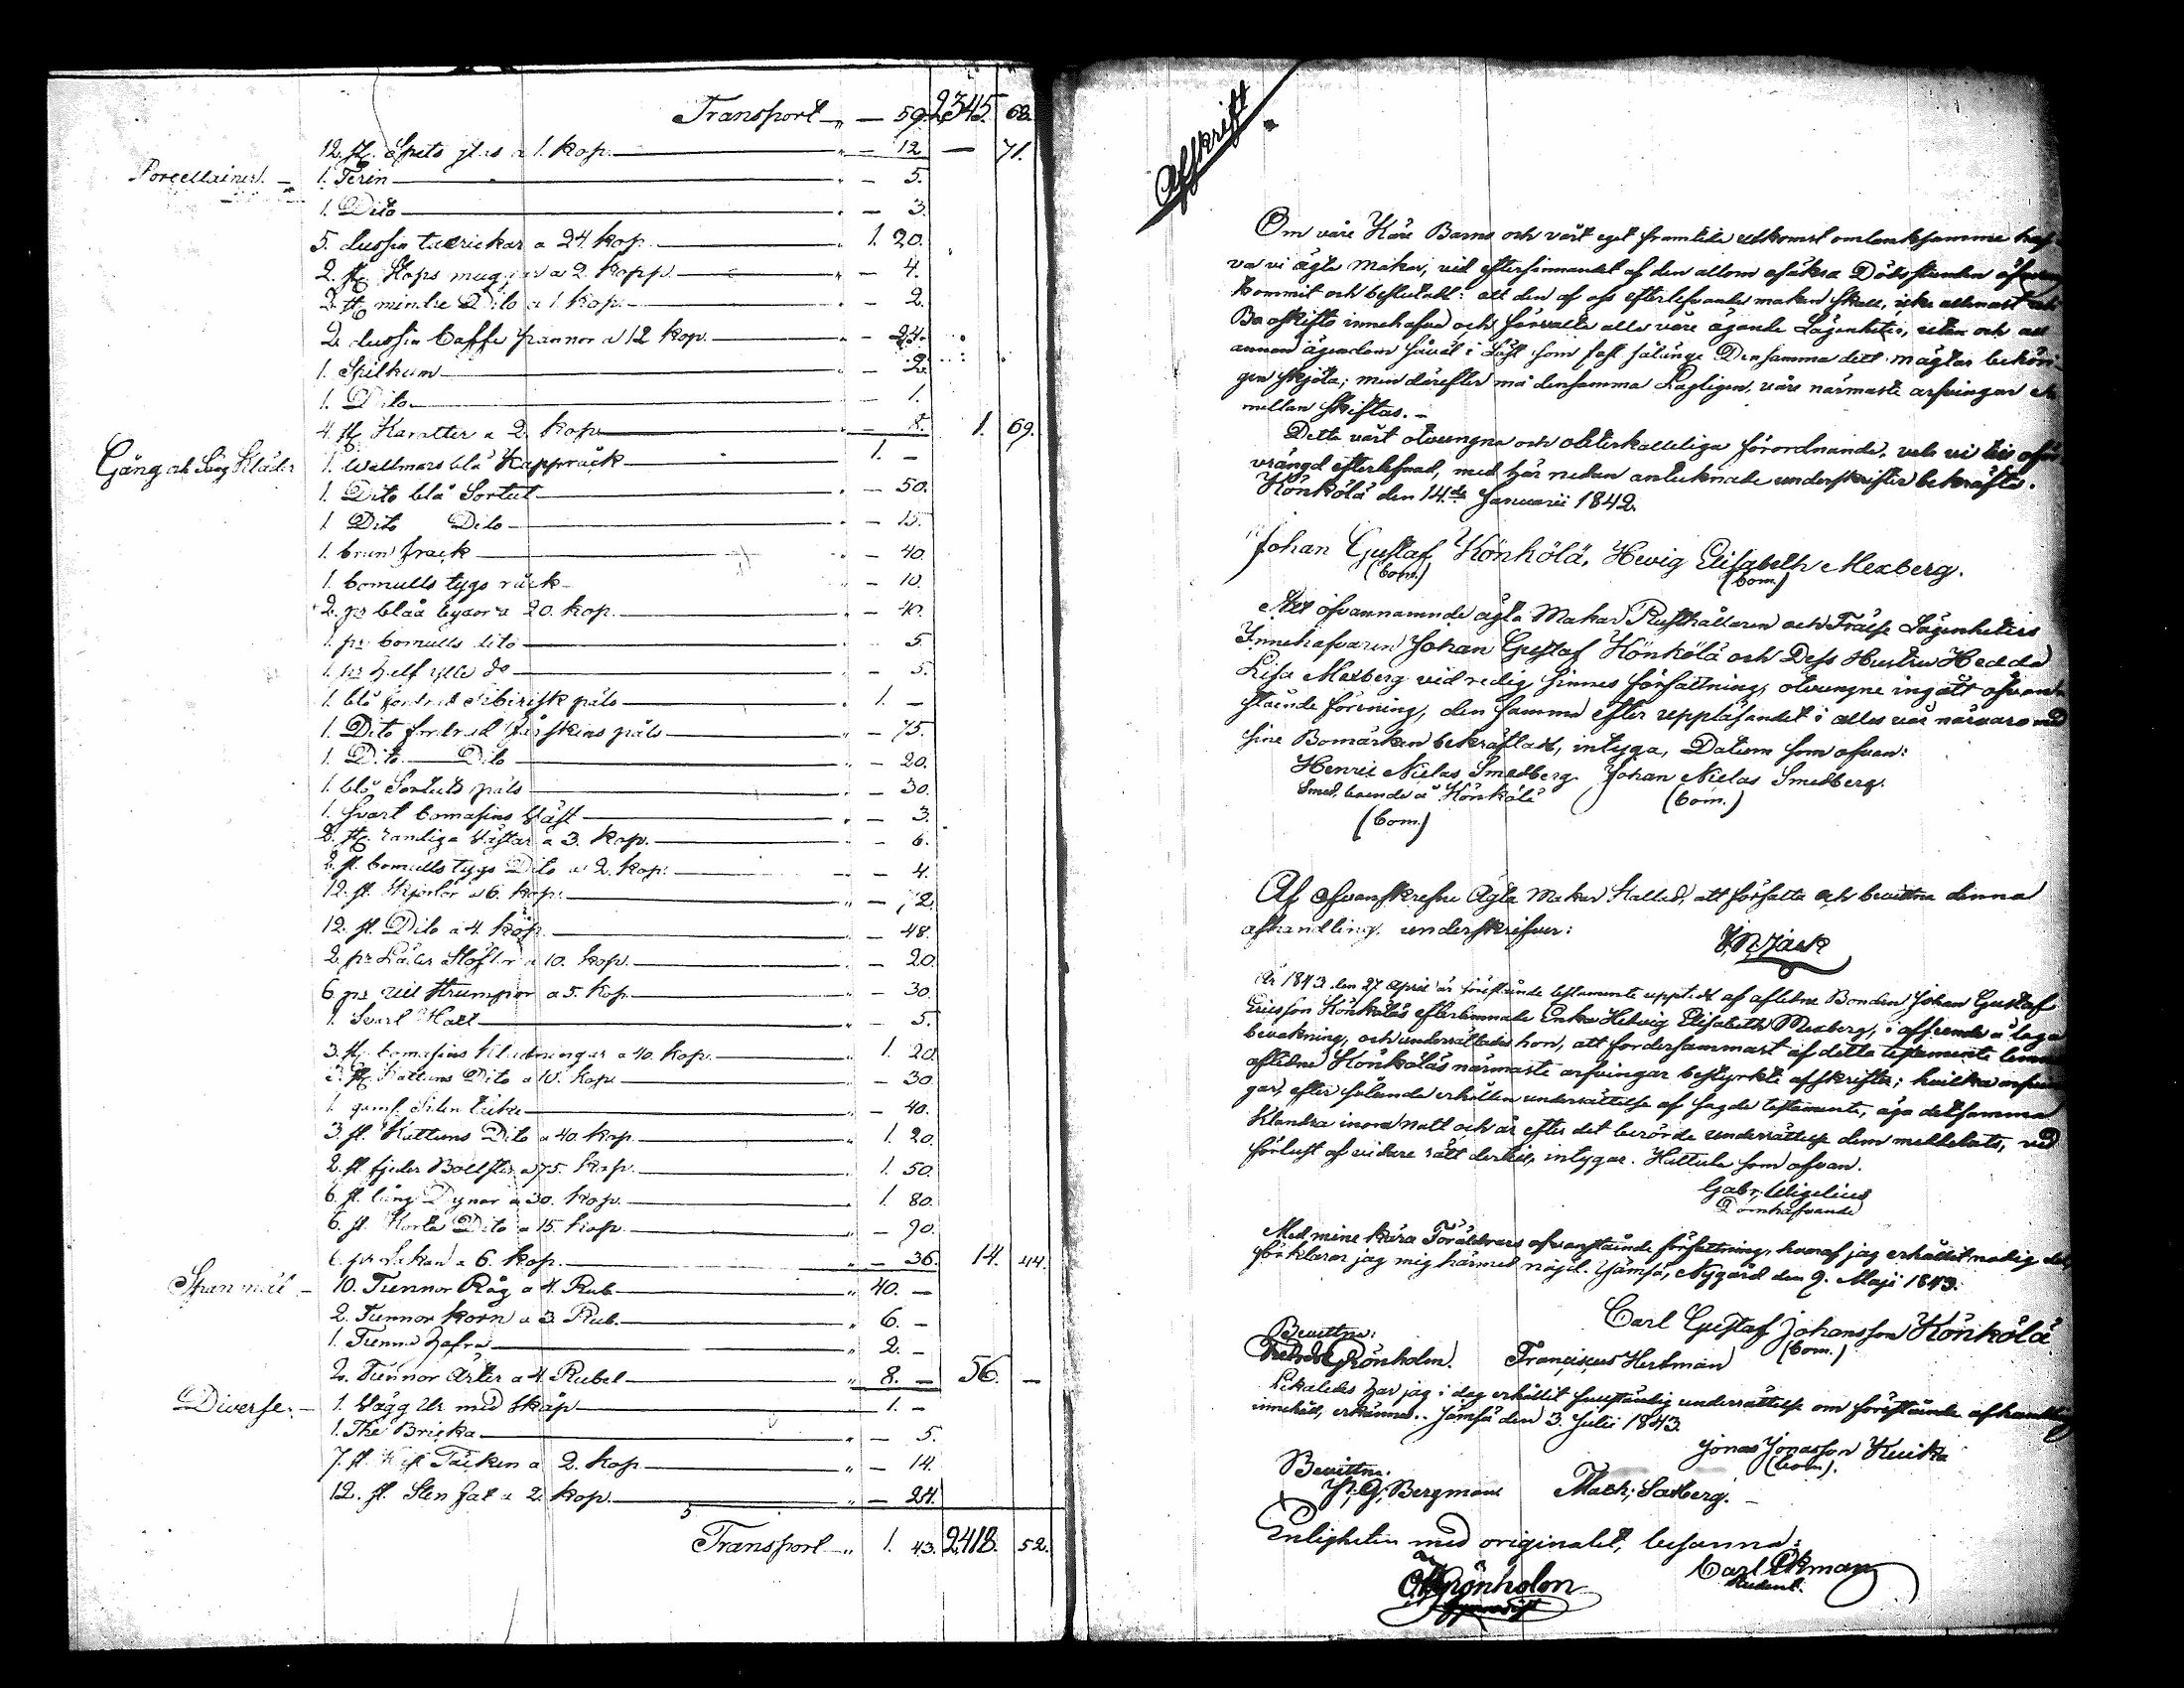 Transport — " — 59. 2345. 68.
12. st. Spets glas a 1. kop. " — 12 — 71.
Porcellainer. — 1. Terin " — 5.
1. Dito " — 3.
5. dussin tallrickar a 24 kop. " 1. 20.
2. st. Stops muggar a 2. kopp. " — 4.
2. st. mindre Dito a 1. kop. " — 2.
2. dussin Caffe pannor a 12 kop. " — 24.
1. Spilkum " — 2.
1. Dito " — 1.
4. st. Karotter a 2. kop. " — 8. 1. 69.
Gång och Säng Kläder 1. Wallmars blå Kappråck " 1. —
1. Dito blå Sortut " — 50.
1. Dito Dito " — 15.
1. brun frack " — 40.
1. bomulls tygs råck " — 10.
2. pr blåa byxor a 20. kop. " — 40.
1. pr bomulls dito " — 5.
1. pr half ylle do " — 5.
1. blå fodrad Sibirisk päls " 1. —
1. Dito fodrad fårskins päls " — 75.
1. Dito Dito " — 20.
1. blå Sortuts päls " — 30.
1. Svart bomasins Väst " — 3.
2. st. randiga Västar a 3. kop. " — 6.
2. st. bomulls tygs Dito a 2. kop. " — 4.
12. st. Skjortor a 6. kop. " — 72.
12. st. Dito a 4 kop. " — 48.
2. pr Läder Stöflor a 10. kop. " — 20.
6. pr Ull Strumpor a 5. kop. " — 30.
1. Svart Hatt " — 5.
3. st. bomasins Klädningar a 40. kop. " 1. 20.
3. st. Kattuns Dito a 10. kop. " — 30.
1. Siden täcke " — 40.
3. st. Kattuns Dito a 40. kop. " 1. 20.
2. st. fjeder Bolster a 75. kop. " 1. 50.
6. st. lång Dynor a 30. kop. " 1. 80.
6. st. Korta Dito a 15. kop. " — 90.
6. pr Lakan a 6. kop. " — 36. 14. 44.
Spanmål — 10. Tunnor Råg a 4. Rub. " 40. —
2. Tunnor korn a 3. Rub. " 6. —
1. Tunna hafra " 2. —
2. Tunnor Ärter a 4. Rubel " 8. — 56. —
Diverse. — 1. Vägg Ur med Skåp " 1. —
1. The Bricka " — 5.
7. st. Täcken a 2. kop " — 14.
12. st. Sten fat a 2. kop. " — 24.
Transport " 1. 43. 2418. 52.
Afskrift
Om våre Käre Barns och vårt eget framtida utkomst omtänksamme haf-
va vi ägta makar, vid eftersinnandet af den allom osäkra Dödsstunden öfverens
kommit och beslutadt: att den af oss efterlefvande makan skall, icke allenast uti
Bo oskifto innehafva och förvalta alla våre ägande Lägenheter, utan och all
annan ägendom såväl i Löst som fast sålänge Densamma dett mägtar behöri-
gen sköta; men därefter må densamma Lagligen, våre närmaste arfvingar e
mellan skiftas. —
Detta vårt otvungna och oåterkalleliga förordnande, vele vi till oför-
vrängd efterlefnad, med här nedan antecknade underskrifter bekräfta.
Könkölä den 14.de Januarii 1842.
Johan Gustaf Könkölä, Hevig Elisabeth Mexberg.
(bom.) (bom.)
Att ofvannamnde ägta Makar Rusthållaren och Frälse Lägenhetes
Innehafvaren Johan Gustaf Könkölä och Dess Hustru Hedda
Lisa Mexberg vid redig sinnes författning, otvungne ingått ofvan
stående förening, den samma efter uppläsandet i alles vår närvaro med
sine Bomärken bekräftadt, intyga, Datum som ofvan:
Henric Niclas Smedberg. Johan Niclas Smedberg.
Smed, boende å Könkölä (bom.)
(bom.)
Af ofvanskrefne Ägta Makar Kallad, att författa och bevittna denna
afhandling. underskrifver:
År 1843. den 27 April är föreståënde testamente uppte dt af aflidne Bonden Johan Gustaf
Ericsson Könköläs efterlemnade Enka Hedvig Elisabeth Mexberg, i afseende å laga
bevakning, och underrättades hon, att fordersammast af detta testamente lemna
aflidne Könköläs närmaste arfvingar bestyrkte afskrifter; hvilka arfvin
gar, efter sålunda erhållen underrättelse af sagde testamente, äga detsamma
Klandra inom natt och år efter det berörde underrättelse dem meddelats, vid
förlust af vidare rätt dertill, intygar. Hattula som ofvan.
Gabr. Wigelius
Domhafvande
Med mine kära Föräldrars ofvanstående författning, hvaraf jag erhållit nödig del,
förklarar jag mig härmed nöjd. Jämsä, Nygård den 9. Maji 1843.
Carl Gustaf Johansson Könkölä
(bom.)
Bevittna:
Grönholm. Franciscus Hertman
Likaledes har jag i dag erhållit fullständig underrättelse om föreståënde afhandlings
innehåll, erkännes. Jämsä den 3. Julii 1843.
Jonas Jonasson Kuikka
(bom).
Bevittna:
Bergman Math: Saxberg. —
Enligheten med originalet, besanna:
Grönholm Carl Ekman
Student.